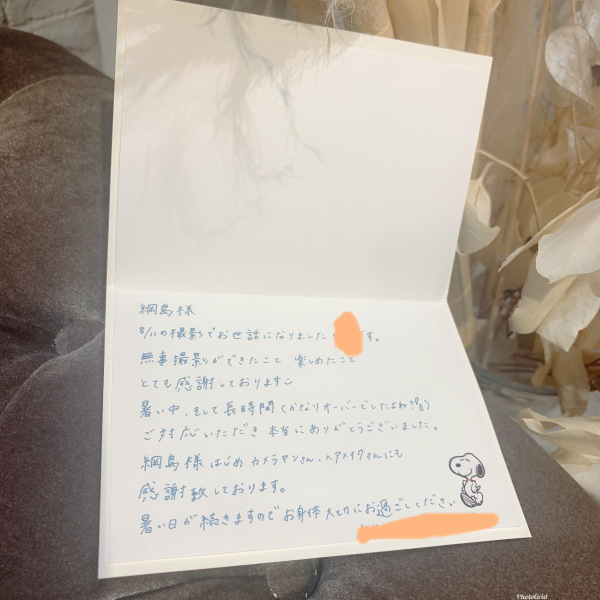 綱島様
8/11の撮影でお世話になりました す。
無事撮影ができたこと 楽しめたこと
とても感謝しております
暑い中、そして長時間(かなりオーバーでしたよね!?)
ご対応いただき本当にありがとうございました。
綱島様はじめカメラマンさん、ヘアメイクさんにも
感謝致しております。
暑い日が続きますのでお身体大切にお過ごしください
PhotoGrid